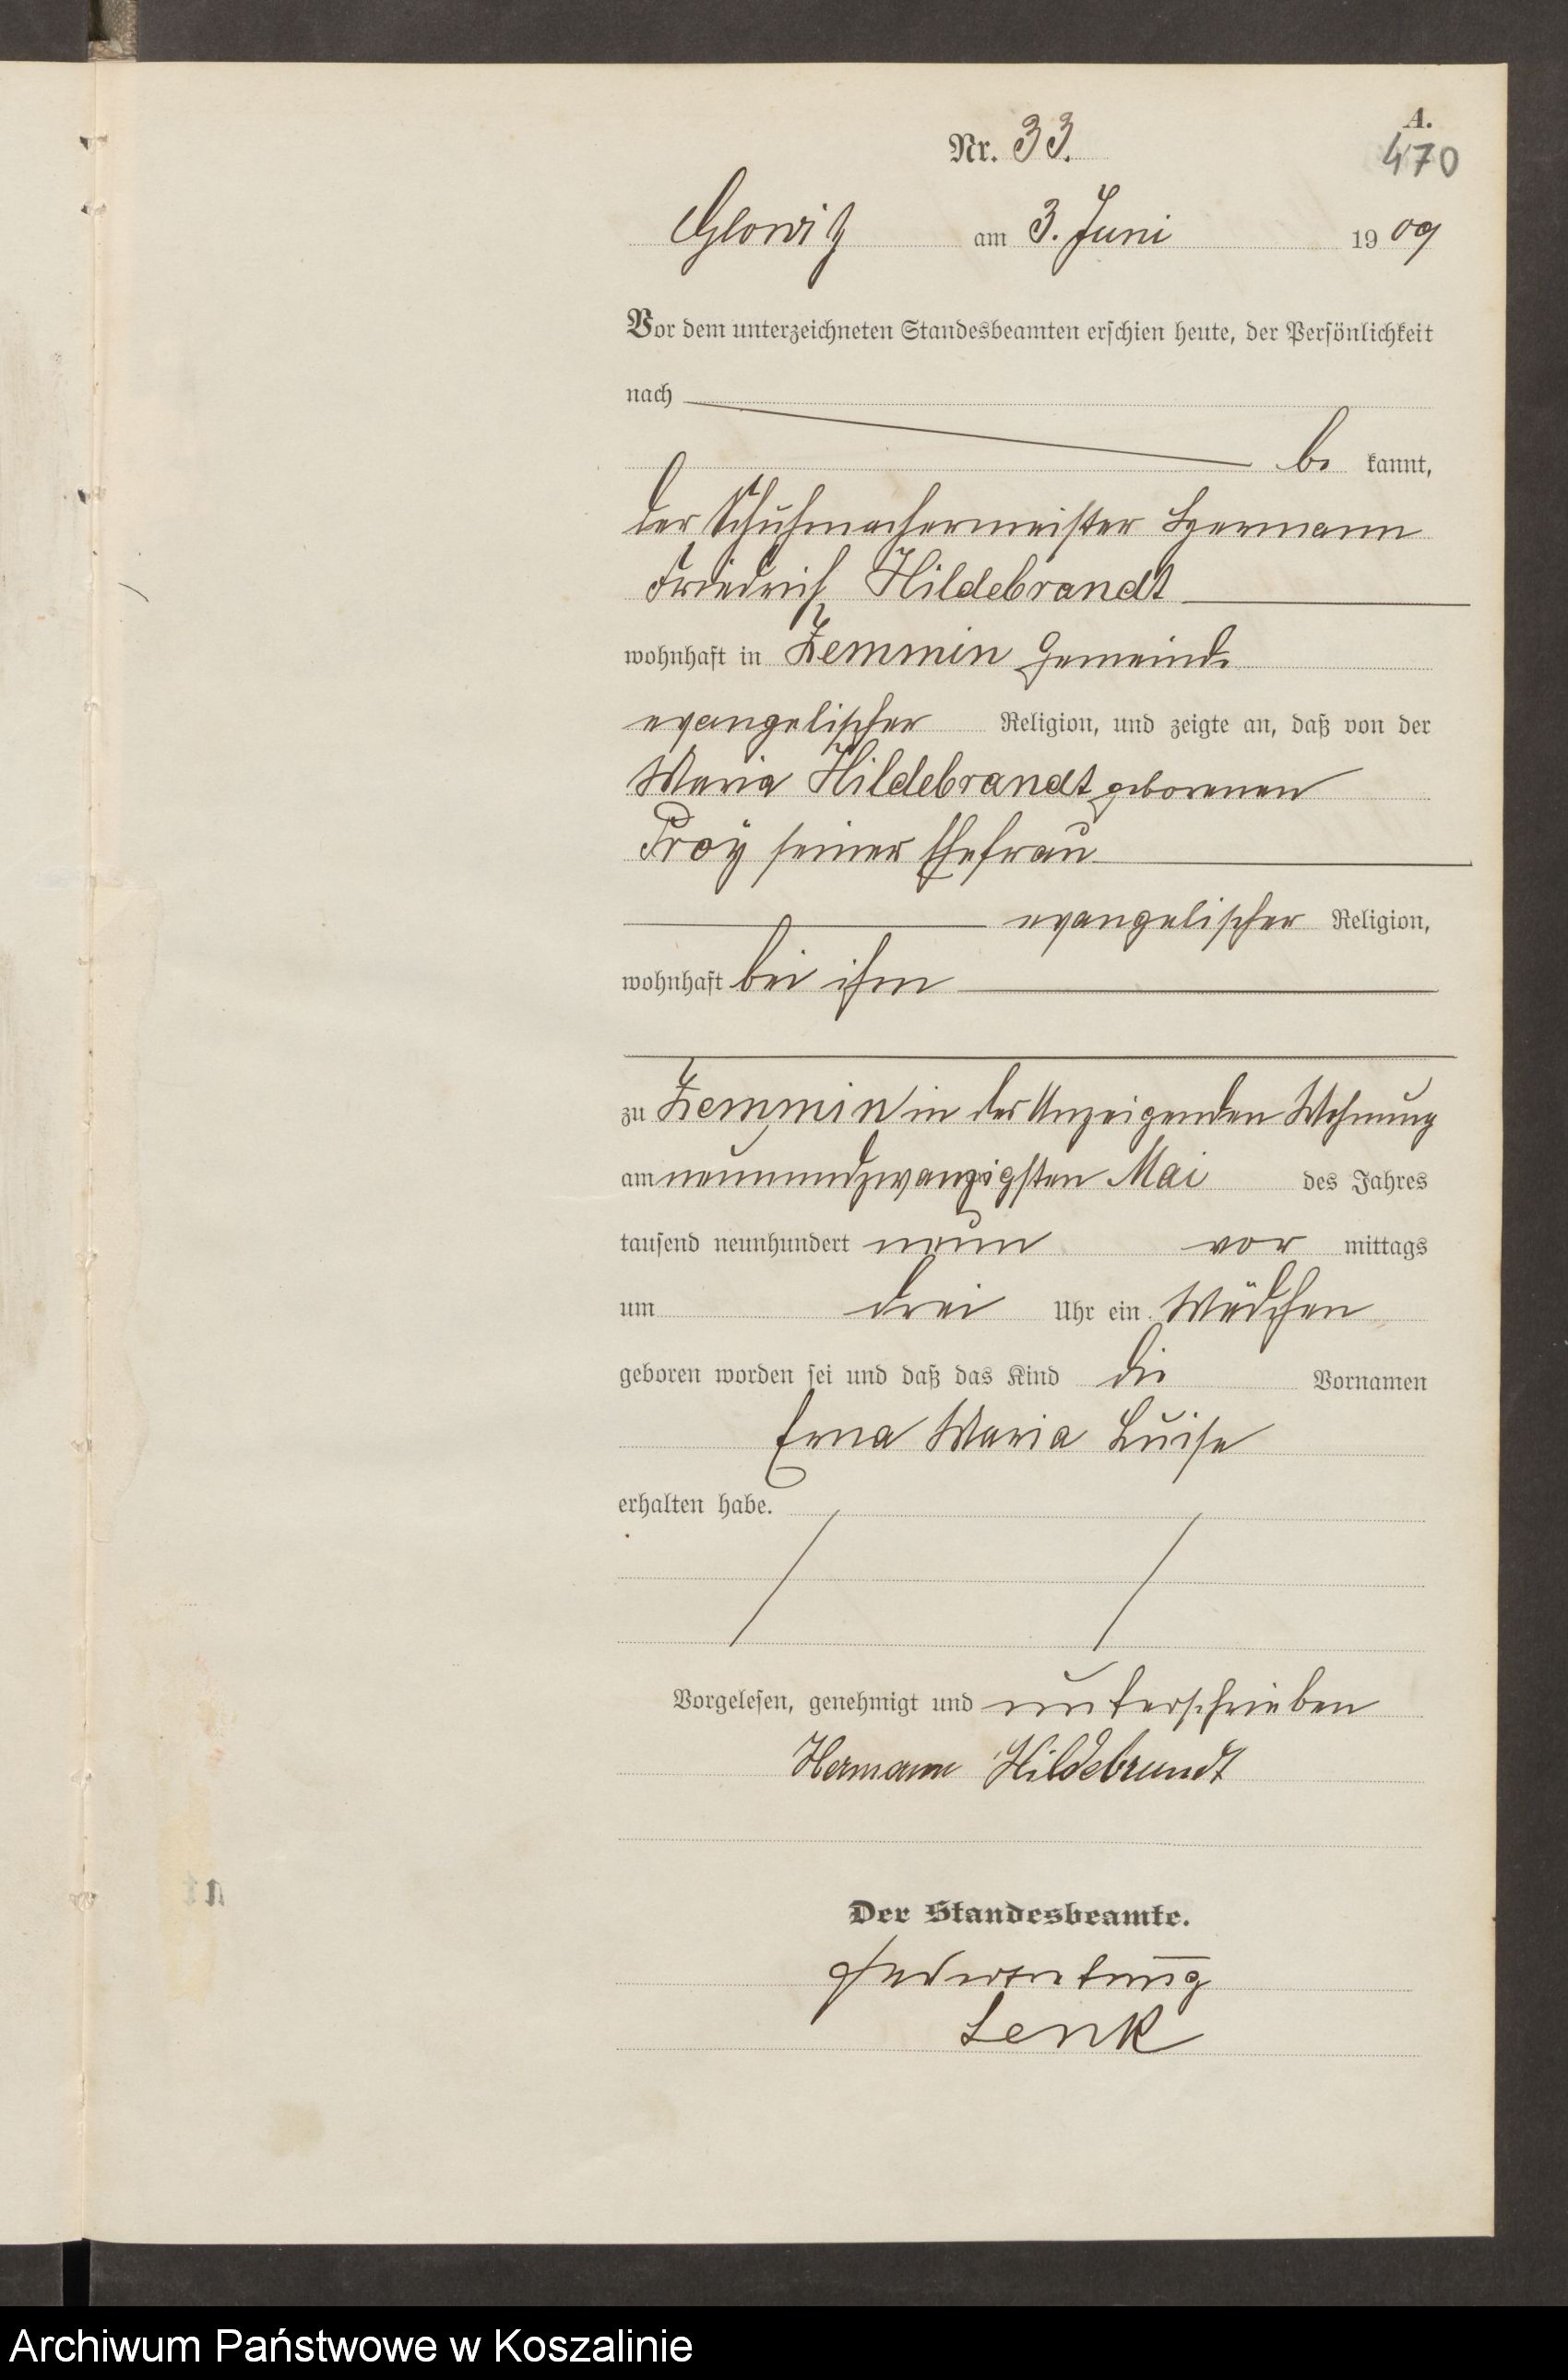 A.
Nr. 33.
470
Glowitz am 3. Juni 1909
Vor dem unterzeichneten Standesbeamten erschien heute, der Persönlichkeit
nach
be kannt,
der Schuhmachermeister Hermann
Friedrich Hildebrandt
wohnhaft in Zemmin Gemeinde
evangelischer Religion, und zeigte an, daß von der
Maria Hildebrandt geborenen
Proÿ seiner Ehefrau
evangelischer Religion,
wohnhaft bei ihm
zu Zemmin in des Anzeigenden Wohnung
am neunundzwanzigsten Mai des Jahres
tausend neunhundert neun vor mittags
um drei Uhr ein Mädchen
geboren worden sei und daß das Kind die Vornamen
Erna Maria Luise
erhalten habe.
Vorgelesen, genehmigt und unterschrieben
Hermann Hildebrandt
Der Standesbeamte.
Lenk
Archiwum Państwowe w Koszalinie